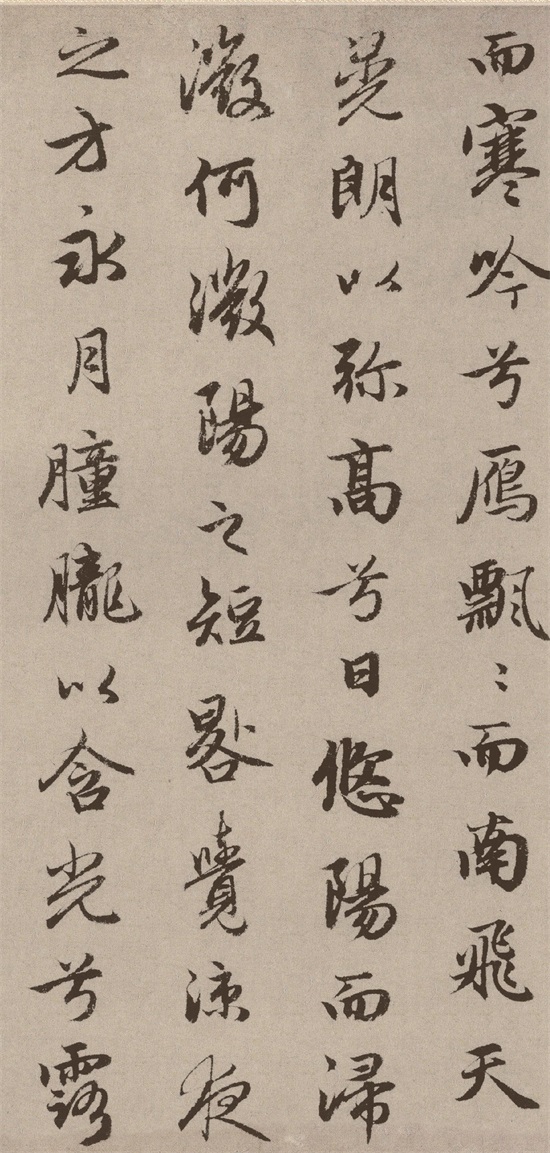 而寒吟兮鴈飄〻而南飛天
晃朗以弥高兮日悠陽而浸
微何微陽之短晷覺涼夜
之方永月朣朧以含光兮露